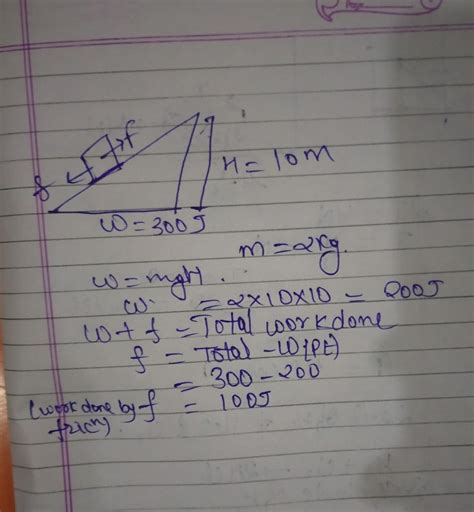 f
f
H = 10m
W = 300J
m = 2kg.
W = mgH.
W = 2×10×10 = 200J
W + f = Total workdone
f = Total - W(PE)
= 300 - 200
(work done by f = 100J
fricn)